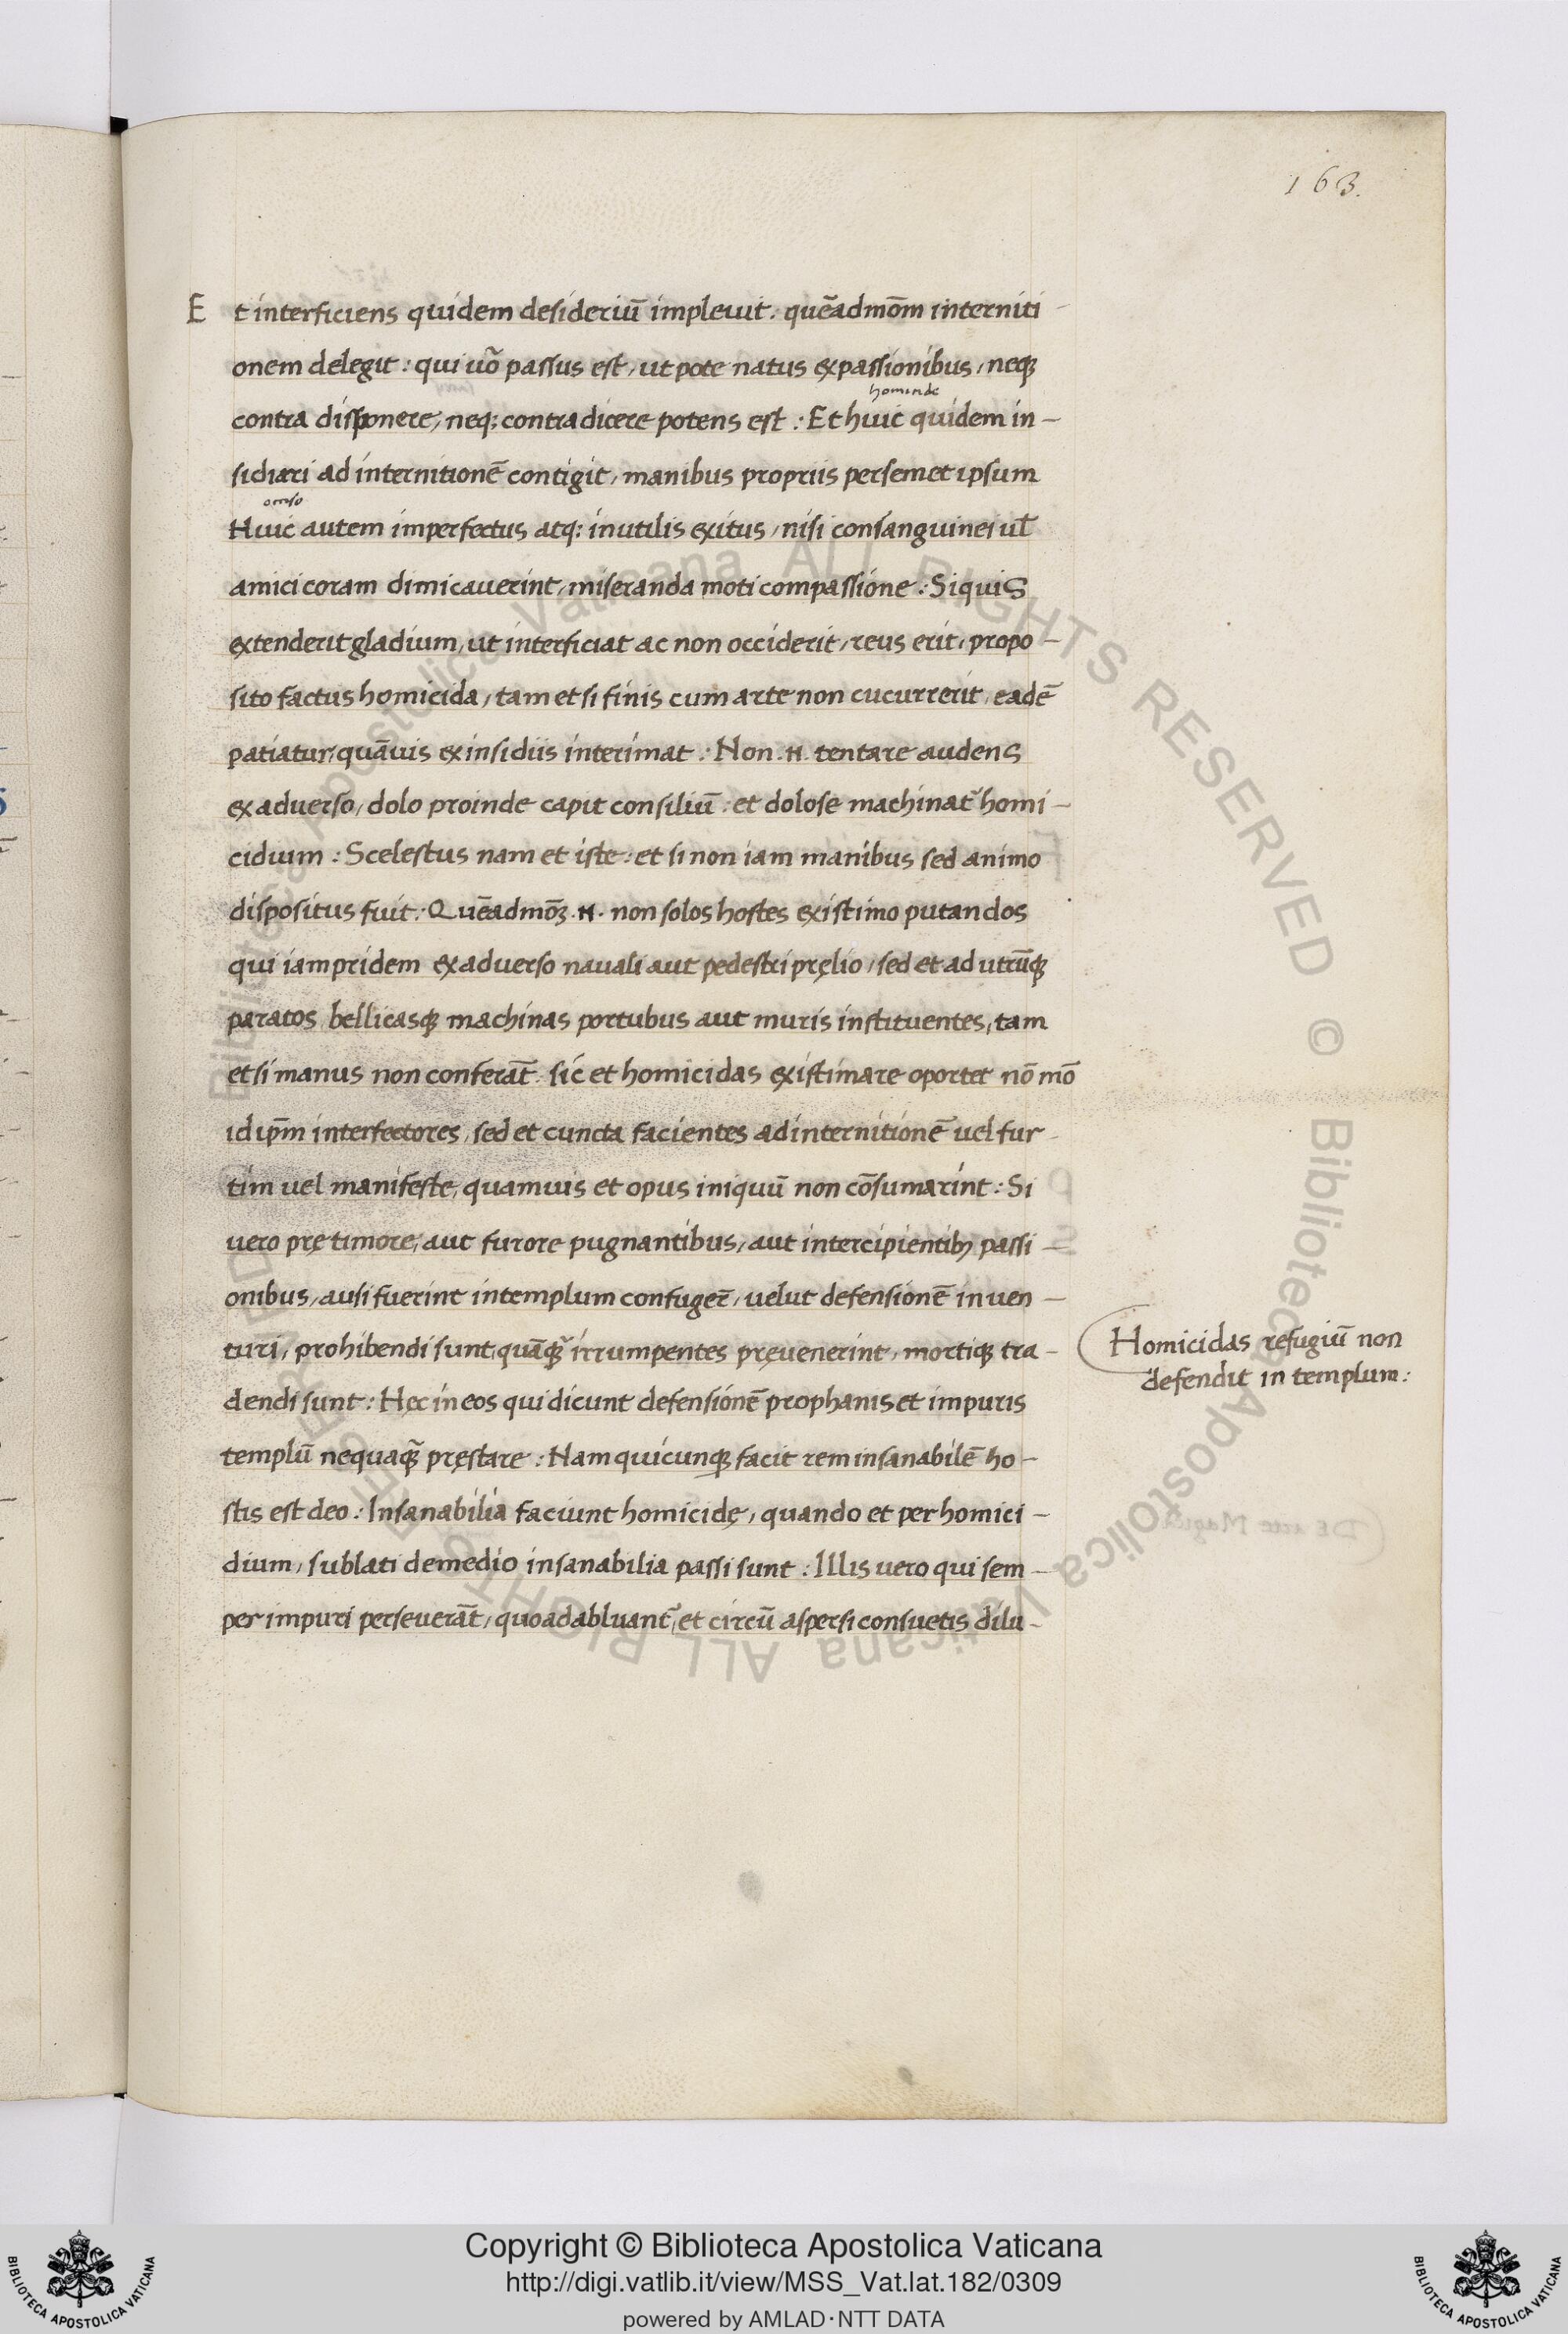 163.
Et interficiens quidem desideriū impleuit. quēadmōm interniti
onem delegit: qui uō passus est, ut pote natus ex passionibus, neqꝫ
contra disponere, neqꝫ contradicere potens est: Et huic quidem in-
sidiari ad internitionē contigit, manibus propriis per semet ipsum
Huic autem imperfectus atqꝫ inutilis exitus, nisi consanguinei ul̄
amici coram dimicauerint, miseranda moti compassione: Si quis
extenderit gladium, ut interficiat ac non occiderit, reus erit, propo-
sito factus homicida, tam et si finis cum arte non cucurrerit, eadē
patiatur, quāuis ex insidiis interimat: Non .n. tentare audens
ex aduerso, dolo proinde capit consiliū: et dolose machinat̄ homi-
cidium: Scelestus nam et iste: et si non iam manibus sed animo
dispositus fuit: Quēadmōꝫ .n. non solos hostes existimo putandos
qui iampridem ex aduerso nauali aut pedestri pręlio, sed et ad utrūqꝫ
paratos bellicasqꝫ machinas portubus aut muris instituentes, tam
et si manus non conferāt. sic et homicidas existimare oportet nō mō
id ip̄m interfectores, sed et cuncta facientes ad internitionē uel fur-
tim uel manifeste, quamuis et opus iniquū non cōsumarint: Si
uero prę timore, aut furore pugnantibus, aut intercipientibꝫ passi-
onibus, ausi fuerint in templum confugeꝛ̄, uelut defensionē inuen-
turi, prohibendi sunt, quāqꝫ̄ irrumpentes pręuenerint, mortiqꝫ tra-
dendi sunt: Hęc in eos qui dicunt defensionē prophanis et impuris
templū nequaq̄ꝫ pręstare: Nam quicunqꝫ facit rem insanabilē ho-
stis est deo: Insanabilia faciunt homicidę, quando et per homici-
dium, sublati de medio insanabilia passi sunt: Illis uero qui sem-
per impuri perseuerāt, quoad abluant̄, et circū aspersi consuetis dilu-
Homicidas refugiū non
defendit in templum:
Copyright © Biblioteca Apostolica Vaticana
http://digi.vatlib.it/view/MSS_Vat.lat.182/0309
powered by AMLAD·NTT DATA
BIBLIOTECA APOSTOLICA VATICANA
BIBLIOTECA APOSTOLICA VATICANA